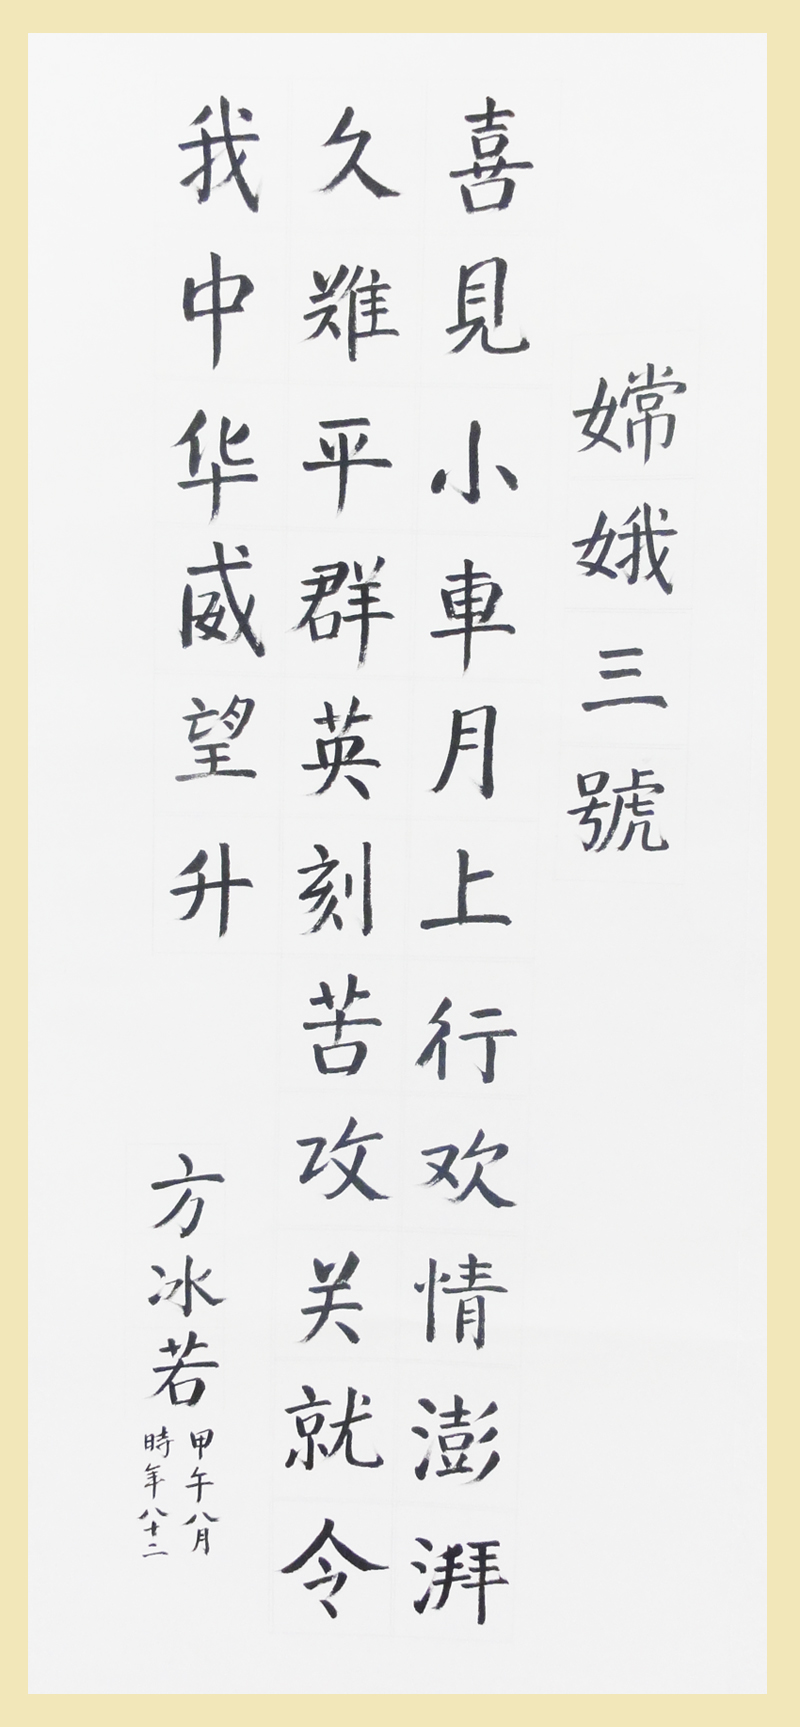 嫦娥三號
喜見小車月上行欢情澎湃
久难平群英刻苦攻关就令
我中华威望升
方冰若
甲午八月
時年八十二